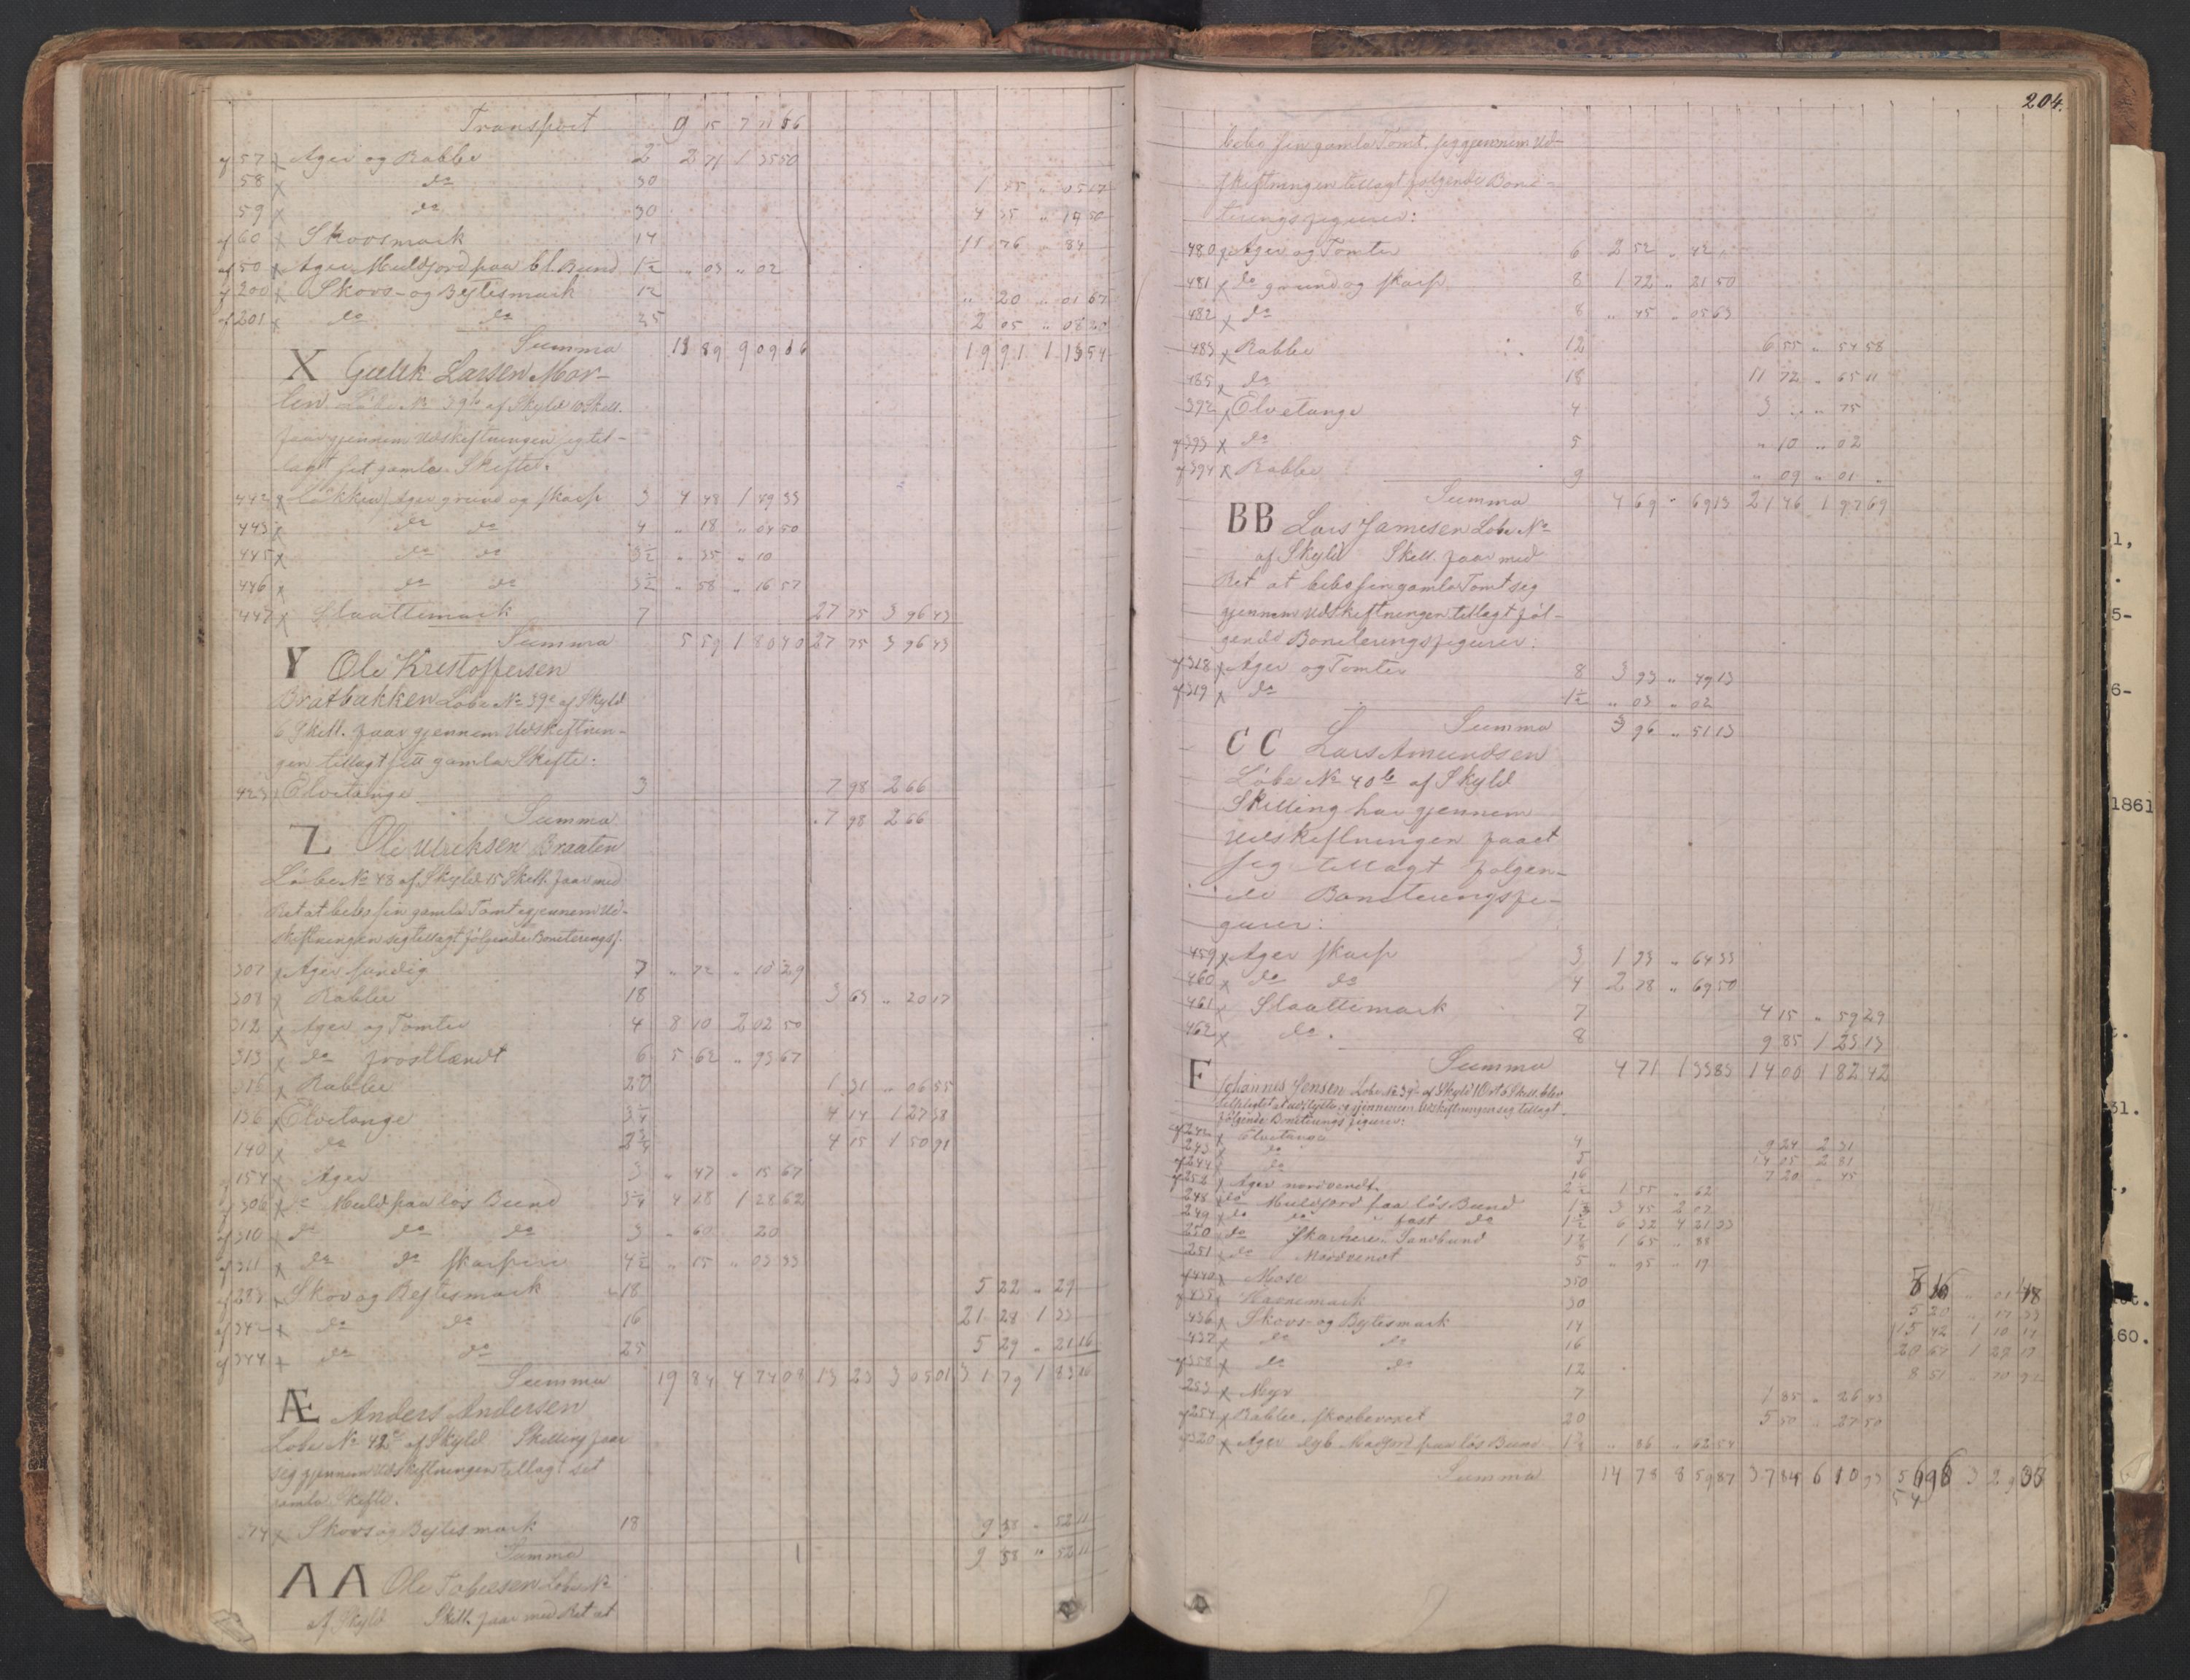 Transport 9 15 7
af 57 x Ager og Rabbe 2 2 71 1 35 50
58 x do 30 1 55 " 05 17
59 x do 30 4 35 " 14 50
af 60 x Skovsmark 14 11 76 " 84
af 50 x Ager Muldjord paa bl. Bund 1½ " 03 " 02
af 200 x Skovs- og Bejtesmark 12 " 20 " 01 67
af 201 x do do 25 2 05 " 08 20
Summa 13 89 9 09 19 91 1 13 54
X Gulik Larsen Mor-
ten Løbe No 39b af Skyld 10 Skill.
faar gjennem Udskiftningen sig til-
lagt sit gamle Skifte:
442 x Løkken, Ager grund og skarp 3 4 48 1 49 33
443 x do do 4 " 18 " 04 50
445 x do do 3½ " 35 " 10
446 x do do 3½ " 58 " 16 57
447 x Slaattemark 7 27 75 3 96 43
Summa 5 59 1 80 40 27 75 3 96 43
Y Ole Kristoffersen
Bratbakken Løbe No 39c af Skyld
6 Skill. faar gjennem Udskiftnin-
gen tillagt sitt gamle Skifte:
423 x Elvetange 3 7 98 2 66
Summa 7 98 2 66
Z Ole Ulriksen Braaten
Løbe No 48 af Skyld 15 Skill. faar med
Ret at bebo sin gamle Tomt gjennem Ud-
skiftningen sig tillagt følgende Boniteringsf.
307 x Ager sandig 7 " 72 " 10 29
308 x Rabbe 18 3 63 " 20 17
312 x Ager og Tomter 4 8 10 2 02 50
313 x do frostlændt 6 5 62 " 93 67
316 x Rabbe 20 1 31 " 06 55
136 x Elvetange 3¼ 4 14 1 27 38
140 x do 2¾ 4 15 1 50 91
af 154 x Ager 3 " 47 " 15 67
af 306 x do Muld paa løs Bund 3¼ 4 18 1 28 62
af 310 x do do do 3 " 60 " 20
af 311 x do do skarpere 4½ " 15 " 03 33
af 283 x Skov og Bejtesmark 18 5 22 " 29
af 342 x do do 16 21 28 1 33
af 344 x do do 25 5 29 " 21 16
Summa 19 84 4 74 08 13 23 3 05 01 31 79 1 83 16
Æ Anders Andersen
Løbe No 42c af Skyld Skilling faar
sig gjennem Udskiftningen tillagt sit
gamle Skifte.
74 x Skovs og Bejtes mark 18 9 38 " 52 11
Summa 9 38 " 52 11
AA Ole Tobiesen Løbe No
af Skyld Skill. faar med Ret at
204.
bebo sin gamle Tomt, sig gjennem Ud-
skiftningen tillagt følgende Boni-
teringsfigurer:
480 x Ager og Tomter 6 2 52 " 42 "
481 x do grund og skarp 8 1 72 " 21 50
482 x do 8 " 45 " 05 63
483 x Rabbe 12 6 55 " 54 58
485 x do 18 11 72 " 65 11
392 x Elvetange 4 3 " " 75
af 393 x do 5 " 10 " 02
af 394 x Rabbe 9 " 09 " 01 "
Summa 4 69 " 69 13 21 46 1 97 69
BB Lars Jamesen Løbe No
af Skyld Skill. faar med
Ret at bebo sin gamle Tomt sig
gjennem Udskiftningen tillagt føl-
gende Boniteringsfigurer:
af 318 x Ager og Tomter 8 3 93 " 49 13
af 319 x do 1½ " 03 " 02
Summa 3 96 " 51 13
CC Lars Amundsen
Løbe No 40b af Skyld
Skilling har gjennem
Udskiftningen faaet
sig tillagt følgen-
de Boniteringsfi-
gurer:
459 x Ager skarp 3 1 93 " 64 33
460 x do do 4 2 78 " 69 50
461 x Slaattemark 7 4 15 " 59 29
462 x do 8 9 85 1 23 13
Summa 4 71 1 33 83 14 00 1 82 42
F Johannes Jensen Løbe No 39d af Skyld 1 Ort 6 Skill. blev
selvpligtet at udflytte og gjennem Udskiftningen sig tillagt
følgende Boniterings figurer:
af 242 x Elvetange 4 9 24 2 31
243 x do 5 14 05 2 81
af 244 x do 16 7 20 " 45
af 252 x Ager nordvendt 2½ 1 55 " 62
248 x do Muldjord paa løs Bund 3 45 2 07
249 x do do " fast do 1½ 6 32 4 21 33
250 x do Skarpere Sandbund 1 65 " 88
251 x do Nordvendt 5 " 95 " 19
af 440 x Mose 350
af 435 x Havnemark 30 5 20 " 17 33
436 x Skovs- og Bejtesmark 14 15 42 1 10 14
437 x do do 16 20 67 1 29 19
af 358 x do do 12 8 51 " 70 92
253 x Myr 7 1 85 " 26 43
af 254 x Rabbe, skovbevoxet 20 5 50 " 27 50
af 320 x Ager dyb Madjord paa løs Bund " 86 "
Summa 14 78 8 59 87 37 84 6 10 93
1861
60.